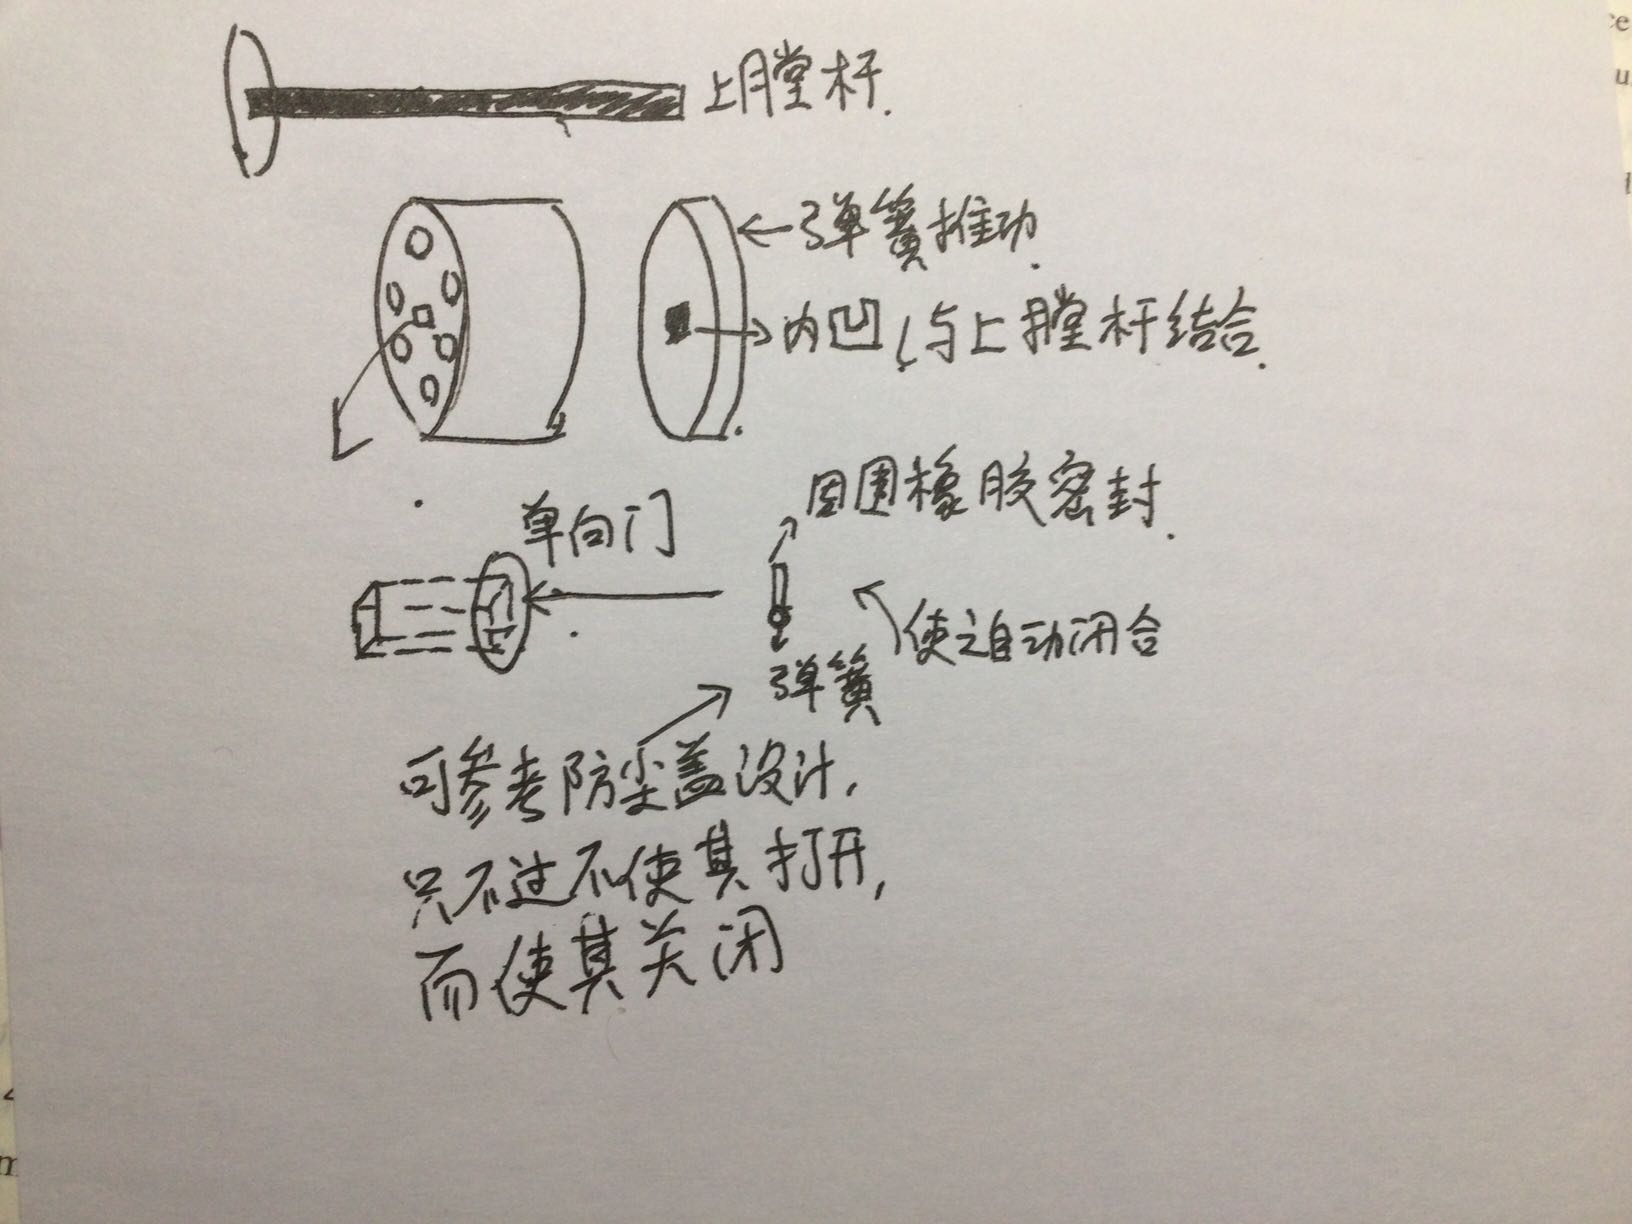 上膛杆.
←弹簧推动.
内凹,与上膛杆结合.
周围橡胶密封.
单向门
使之自动闭合
弹簧
可参考防尘盖设计,
只不过不使其打开,
而使其关闭